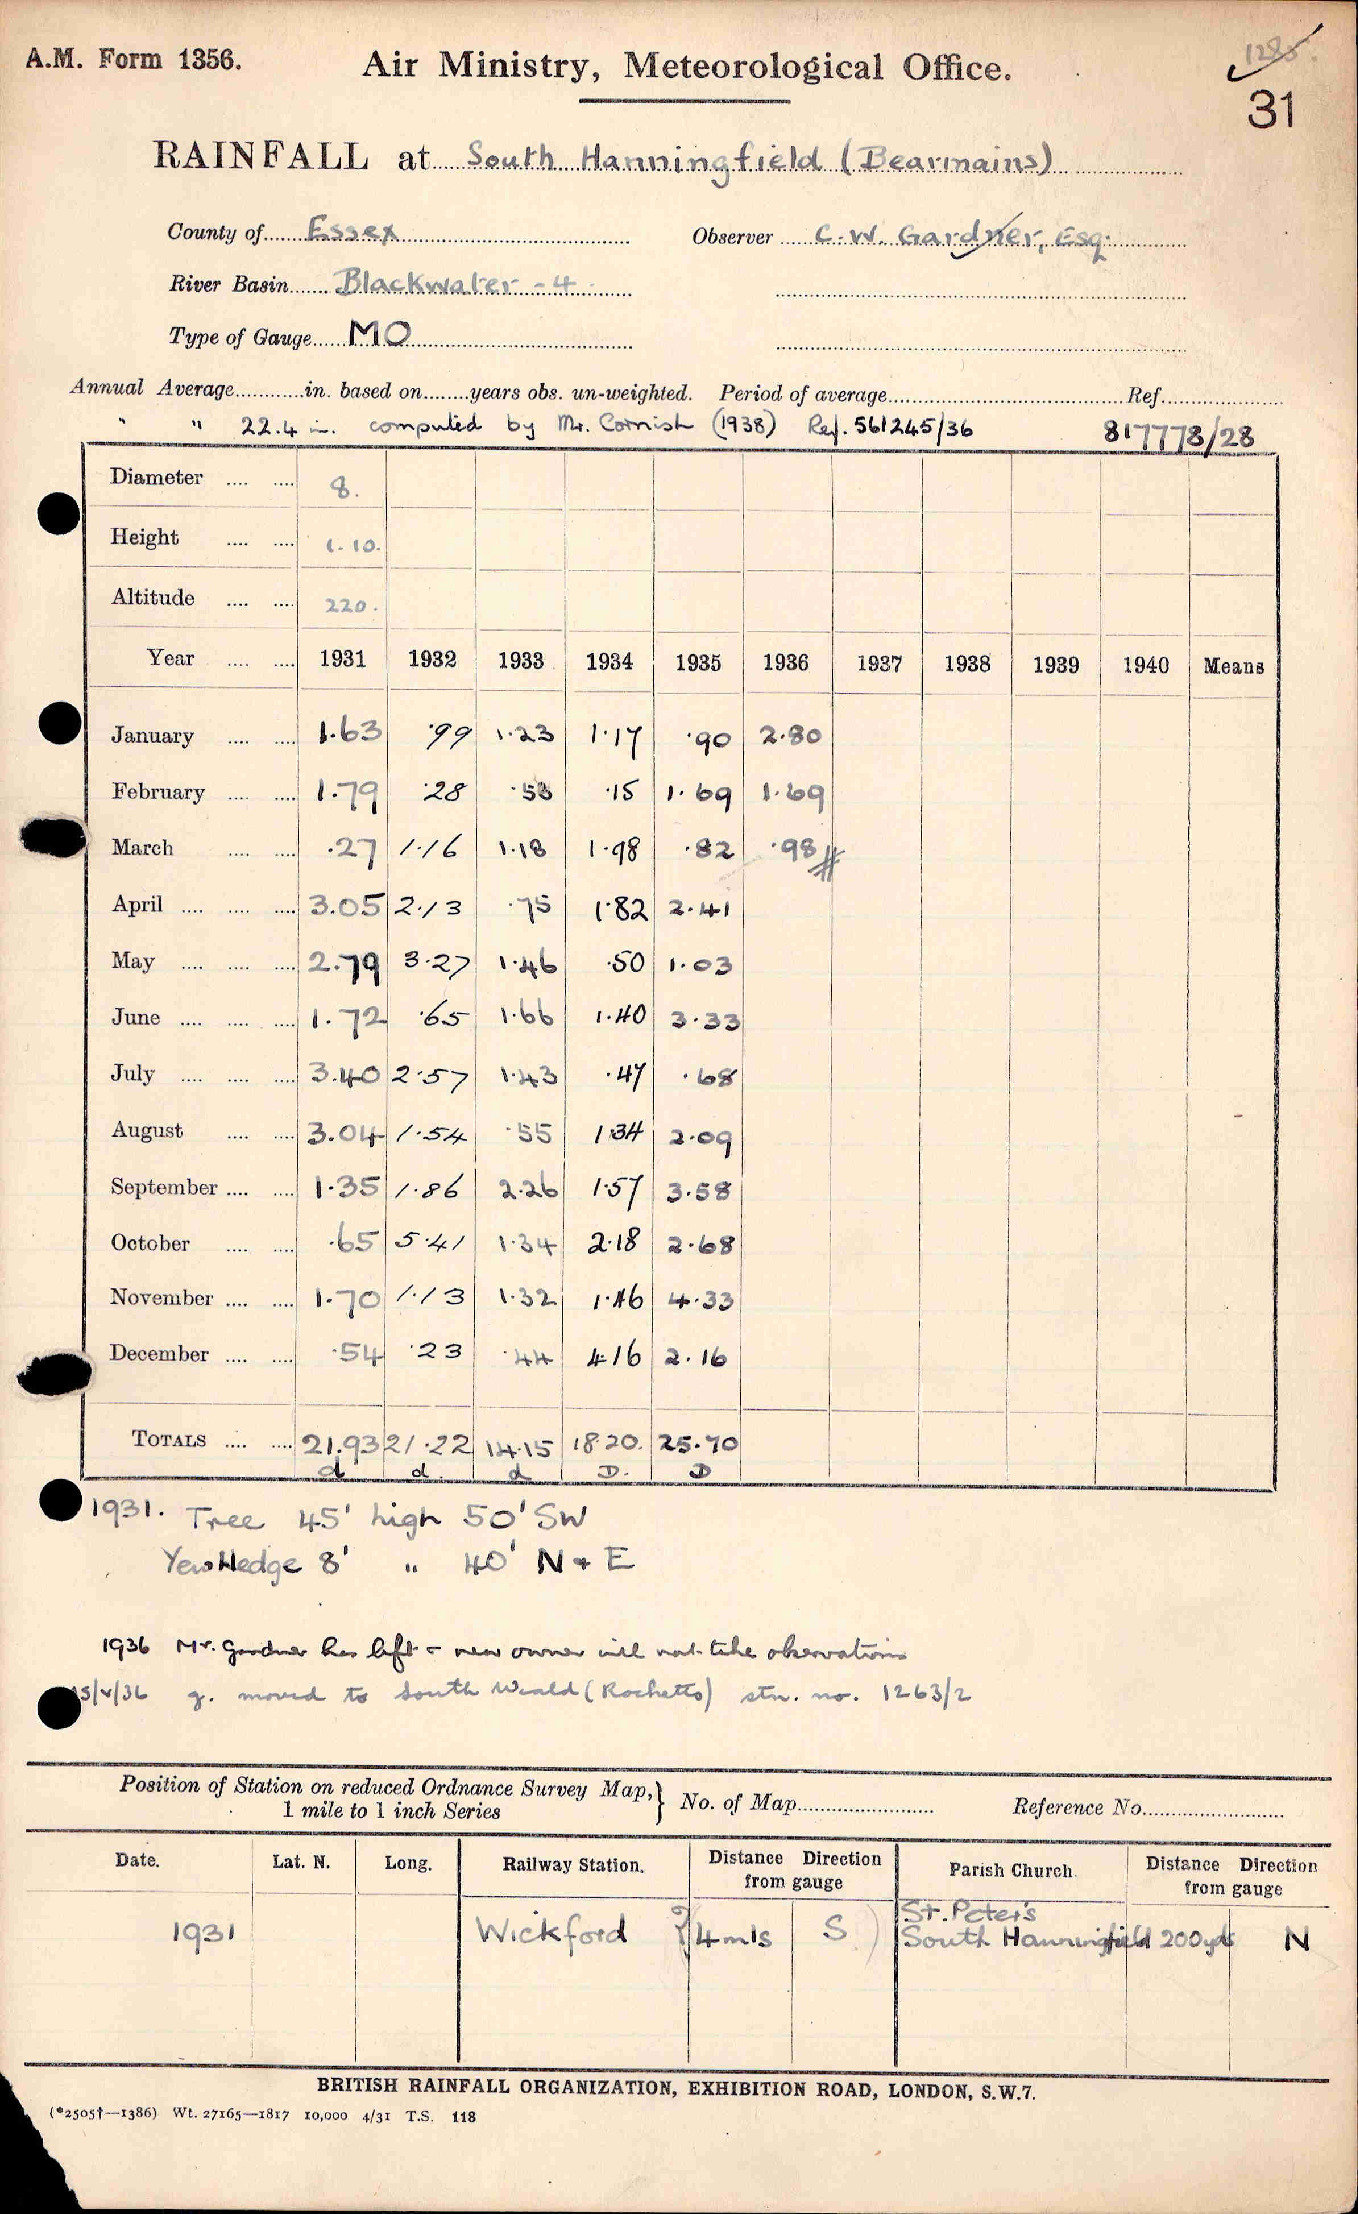 A.M. Form 1356.
Air Ministry, Meteorological Office.
1285.
31
RAINFALL at South Hanningfield (Bearmains)
County of Essex Observer C.W. Gardner, Esq.
River Basin Blackwater - 4
Type of Gauge MO
Annual Average in. based on years obs. un-weighted. Period of average Ref.
" " 22.4 in. computed by Mr. Cornish (1938) Ref. 561245/36 817778/28
Diameter 8.
Height 1.10.
Altitude 220.
Year 1931 1932 1933 1934 1935 1936 1937 1938 1939 1940 Means
January 1.63 .99 1.23 1.17 .90 2.80
February 1.79 .28 .53 .15 1.69 1.69
March .27 1.16 1.18 1.98 .82 .98
April 3.05 2.13 .75 1.82 2.41
May 2.79 3.27 1.46 .50 1.03
June 1.72 .65 1.66 1.40 3.33
July 3.40 2.57 1.43 .47 .68
August 3.04 1.54 .55 1.34 2.09
September 1.35 1.86 2.26 1.57 3.58
October .65 5.41 1.34 2.18 2.68
November 1.70 1.13 1.32 1.46 4.33
December .54 .23 .44 4.16 2.16
TOTALS 21.93 21.22 14.15 18.20. 25.70
d d d D. D
1931. Tree 45' high 50' SW
Yew Hedge 8' " 40' N + E
1936 Mr. Gardner has left - new owner will not take observations
15/4/36 g. moved to South Weald (Rochetts) stn. no. 1263/2
Position of Station on reduced Ordnance Survey Map, 1 mile to 1 inch Series No. of Map Reference No.
Date. Lat. N. Long. Railway Station. Distance Direction from gauge Parish Church Distance Direction from gauge
1931 Wickford ?(4 mls S) St. Peter's South Hanningfield 200 yds N
BRITISH RAINFALL ORGANIZATION, EXHIBITION ROAD, LONDON, S.W.7.
(*2505†—1386) Wt. 27165—1817 10,000 4/31 T.S. 118